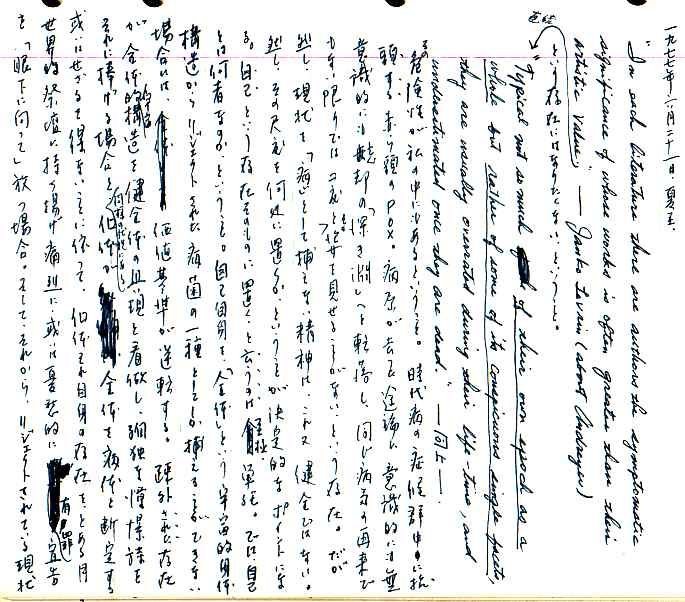 一九七七年六月二十一日、夏至
"In each literature there are authors the symptomatic
significance of whose works is often greater than their
artistic value." — Janko Lavrin (about Andreyev)
という存在にはなりたくない、ということ。
"Typical not so much of their own epoch as a
whole but rather of some of its conspicuous single facets,
they are usually overrated during their life-time, and
underestimated once they are dead." —同上—
その危険性が私の中にもあるということ。時代病の症候群の中に抗
頭する赤い頭のPOX。病原が去ると意識的にも無
意識的にも忘却の「深き淵」へと転落し、同じ病気の再来で
もない限りでは二度と姿を見せることがない、という存在。だが
然し、現状を「病」として捕えない精神は、これ又健全ではない。
然し、その尺度を何処に置くか、ということが決定的なポイントにな
る。自己という存在そのものに置く、と云うのは至極単純。では自己
とは何者なのか、ということ。自己自身を、「全体」という宇宙的身体
構造からリジェクトされた病菌の一種としてしか捕えることができない
場合には、価値基準が逆転する。疎外された存在
が全体的構造を健全体の具現と看做し、孤独な憧憬詩を
それに捧げる場合と、個体が全体を病体と断定する
或いはせざるを得ないことに依って、個体それ自身の存在を、とある
世界的祭壇に持ち揚げ痛烈に、或は憂愁的に有罪宣告
を「眼下に向って」放つ場合。そして、それから、リジェクトされている現状